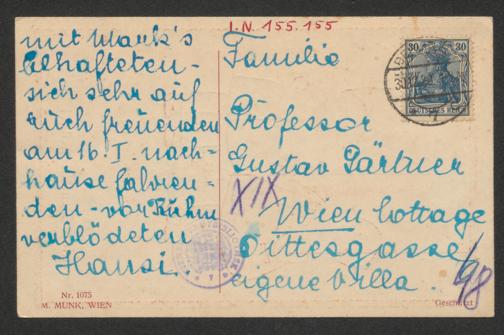 I.N. 155.155
mit Mank's
behafteten -
sich sehr auf
Euch freuenden
am 16. I. nach-
hause fahren-
den - vor Ruhm
verblödeten
Hansi.
Familie
Professor
Gustav Gärtner
XIX
Wien Cottage
Dittesgasse
eigene Villa.
30 30
DEUTSCHES REICH
Nr. 1075
M. MUNK, WIEN
Geschützt